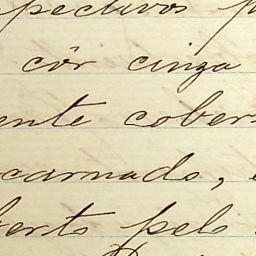 pectivos p
côr cinza
ente cober
carnado, e
berto pelo